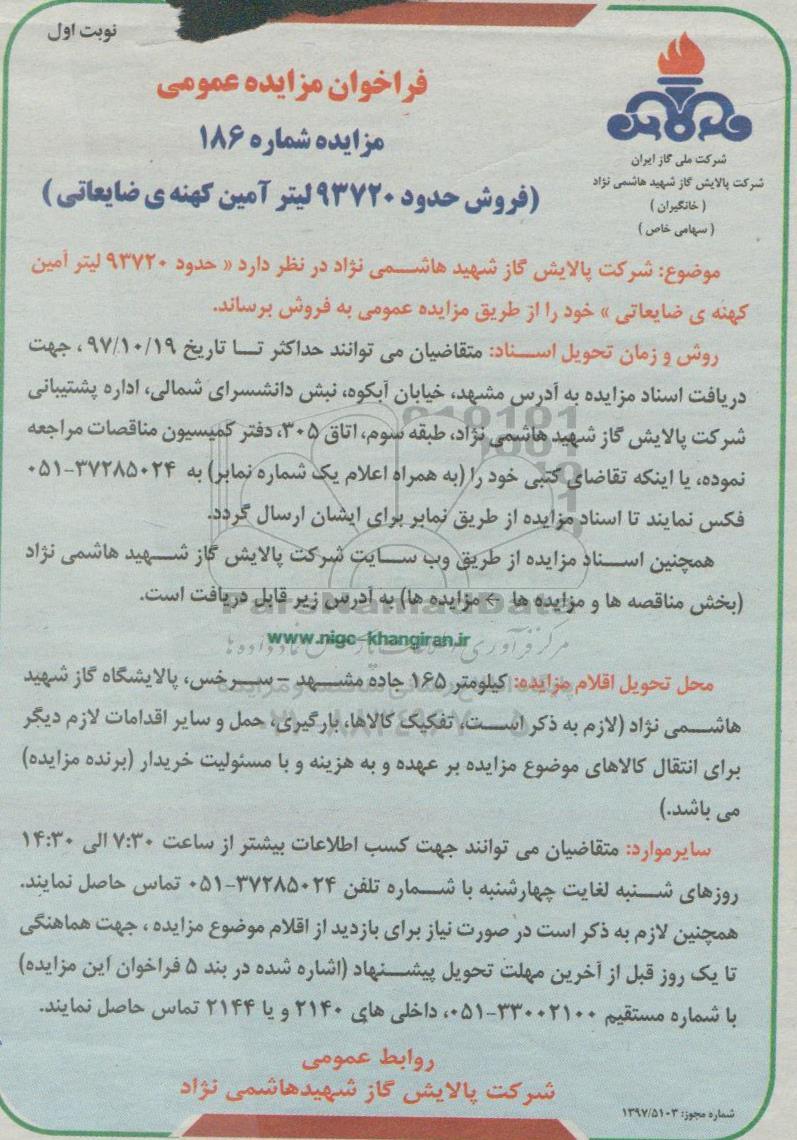 نوبت اول
فراخوان مزایده عمومی
مزایده شماره ۱۸۶
(فروش حدود ۹۳۷۲۰ لیتر آمین کهنه ی ضایعاتی)
شرکت ملی گاز ایران
شرکت پالایش گاز شهید هاشمی نژاد
(خانگیران)
(سهامی خاص)
موضوع: شرکت پالایش گاز شهید هاشمی نژاد در نظر دارد « حدود ۹۳۷۲۰ لیتر آمین
کهنه ی ضایعاتی » خود را از طریق مزایده عمومی به فروش برساند.
روش و زمان تحویل اسناد: متقاضیان می توانند حداکثر تا تاریخ ۹۷/۱۰/۱۹ ، جهت
دریافت اسناد مزایده به آدرس مشهد، خیابان آبکوه، نبش دانشسرای شمالی، اداره پشتیبانی
شرکت پالایش گاز شهید هاشمی نژاد، طبقه سوم، اتاق ۳۰۵، دفتر کمیسیون مناقصات مراجعه
نموده، یا اینکه تقاضای کتبی خود را (به همراه اعلام یک شماره نمابر) به ۳۷۲۸۵۰۲۴-۰۵۱
فکس نمایند تا اسناد مزایده از طریق نمابر برای ایشان ارسال گردد.
همچنین اسناد مزایده از طریق وب سایت شرکت پالایش گاز شهید هاشمی نژاد
(بخش مناقصه ها و مزایده ها ← مزایده ها) به آدرس زیر قابل دریافت است.
www.nigc-khangiran.ir
ParsNamadData
محل تحویل اقلام مزایده: کیلومتر ۱۶۵ جاده مشهد – سرخس، پالایشگاه گاز شهید
هاشمی نژاد (لازم به ذکر است، تفکیک کالاها، بارگیری، حمل و سایر اقدامات لازم دیگر
برای انتقال کالاهای موضوع مزایده بر عهده و به هزینه و با مسئولیت خریدار (برنده مزایده)
می باشد.)
سایرموارد: متقاضیان می توانند جهت کسب اطلاعات بیشتر از ساعت ۷:۳۰ الی ۱۴:۳۰
روزهای شنبه لغایت چهارشنبه با شماره تلفن ۳۷۲۸۵۰۲۴-۰۵۱ تماس حاصل نمایند.
همچنین لازم به ذکر است در صورت نیاز برای بازدید از اقلام موضوع مزایده ، جهت هماهنگی
تا یک روز قبل از آخرین مهلت تحویل پیشنهاد (اشاره شده در بند ۵ فراخوان این مزایده)
با شماره مستقیم ۳۳۰۰۲۱۰۰-۰۵۱، داخلی های ۲۱۴۰ و یا ۲۱۴۴ تماس حاصل نمایند.
روابط عمومی
شرکت پالایش گاز شهیدهاشمی نژاد
شماره مجوز: ۱۳۹۷/۵۱۰۳